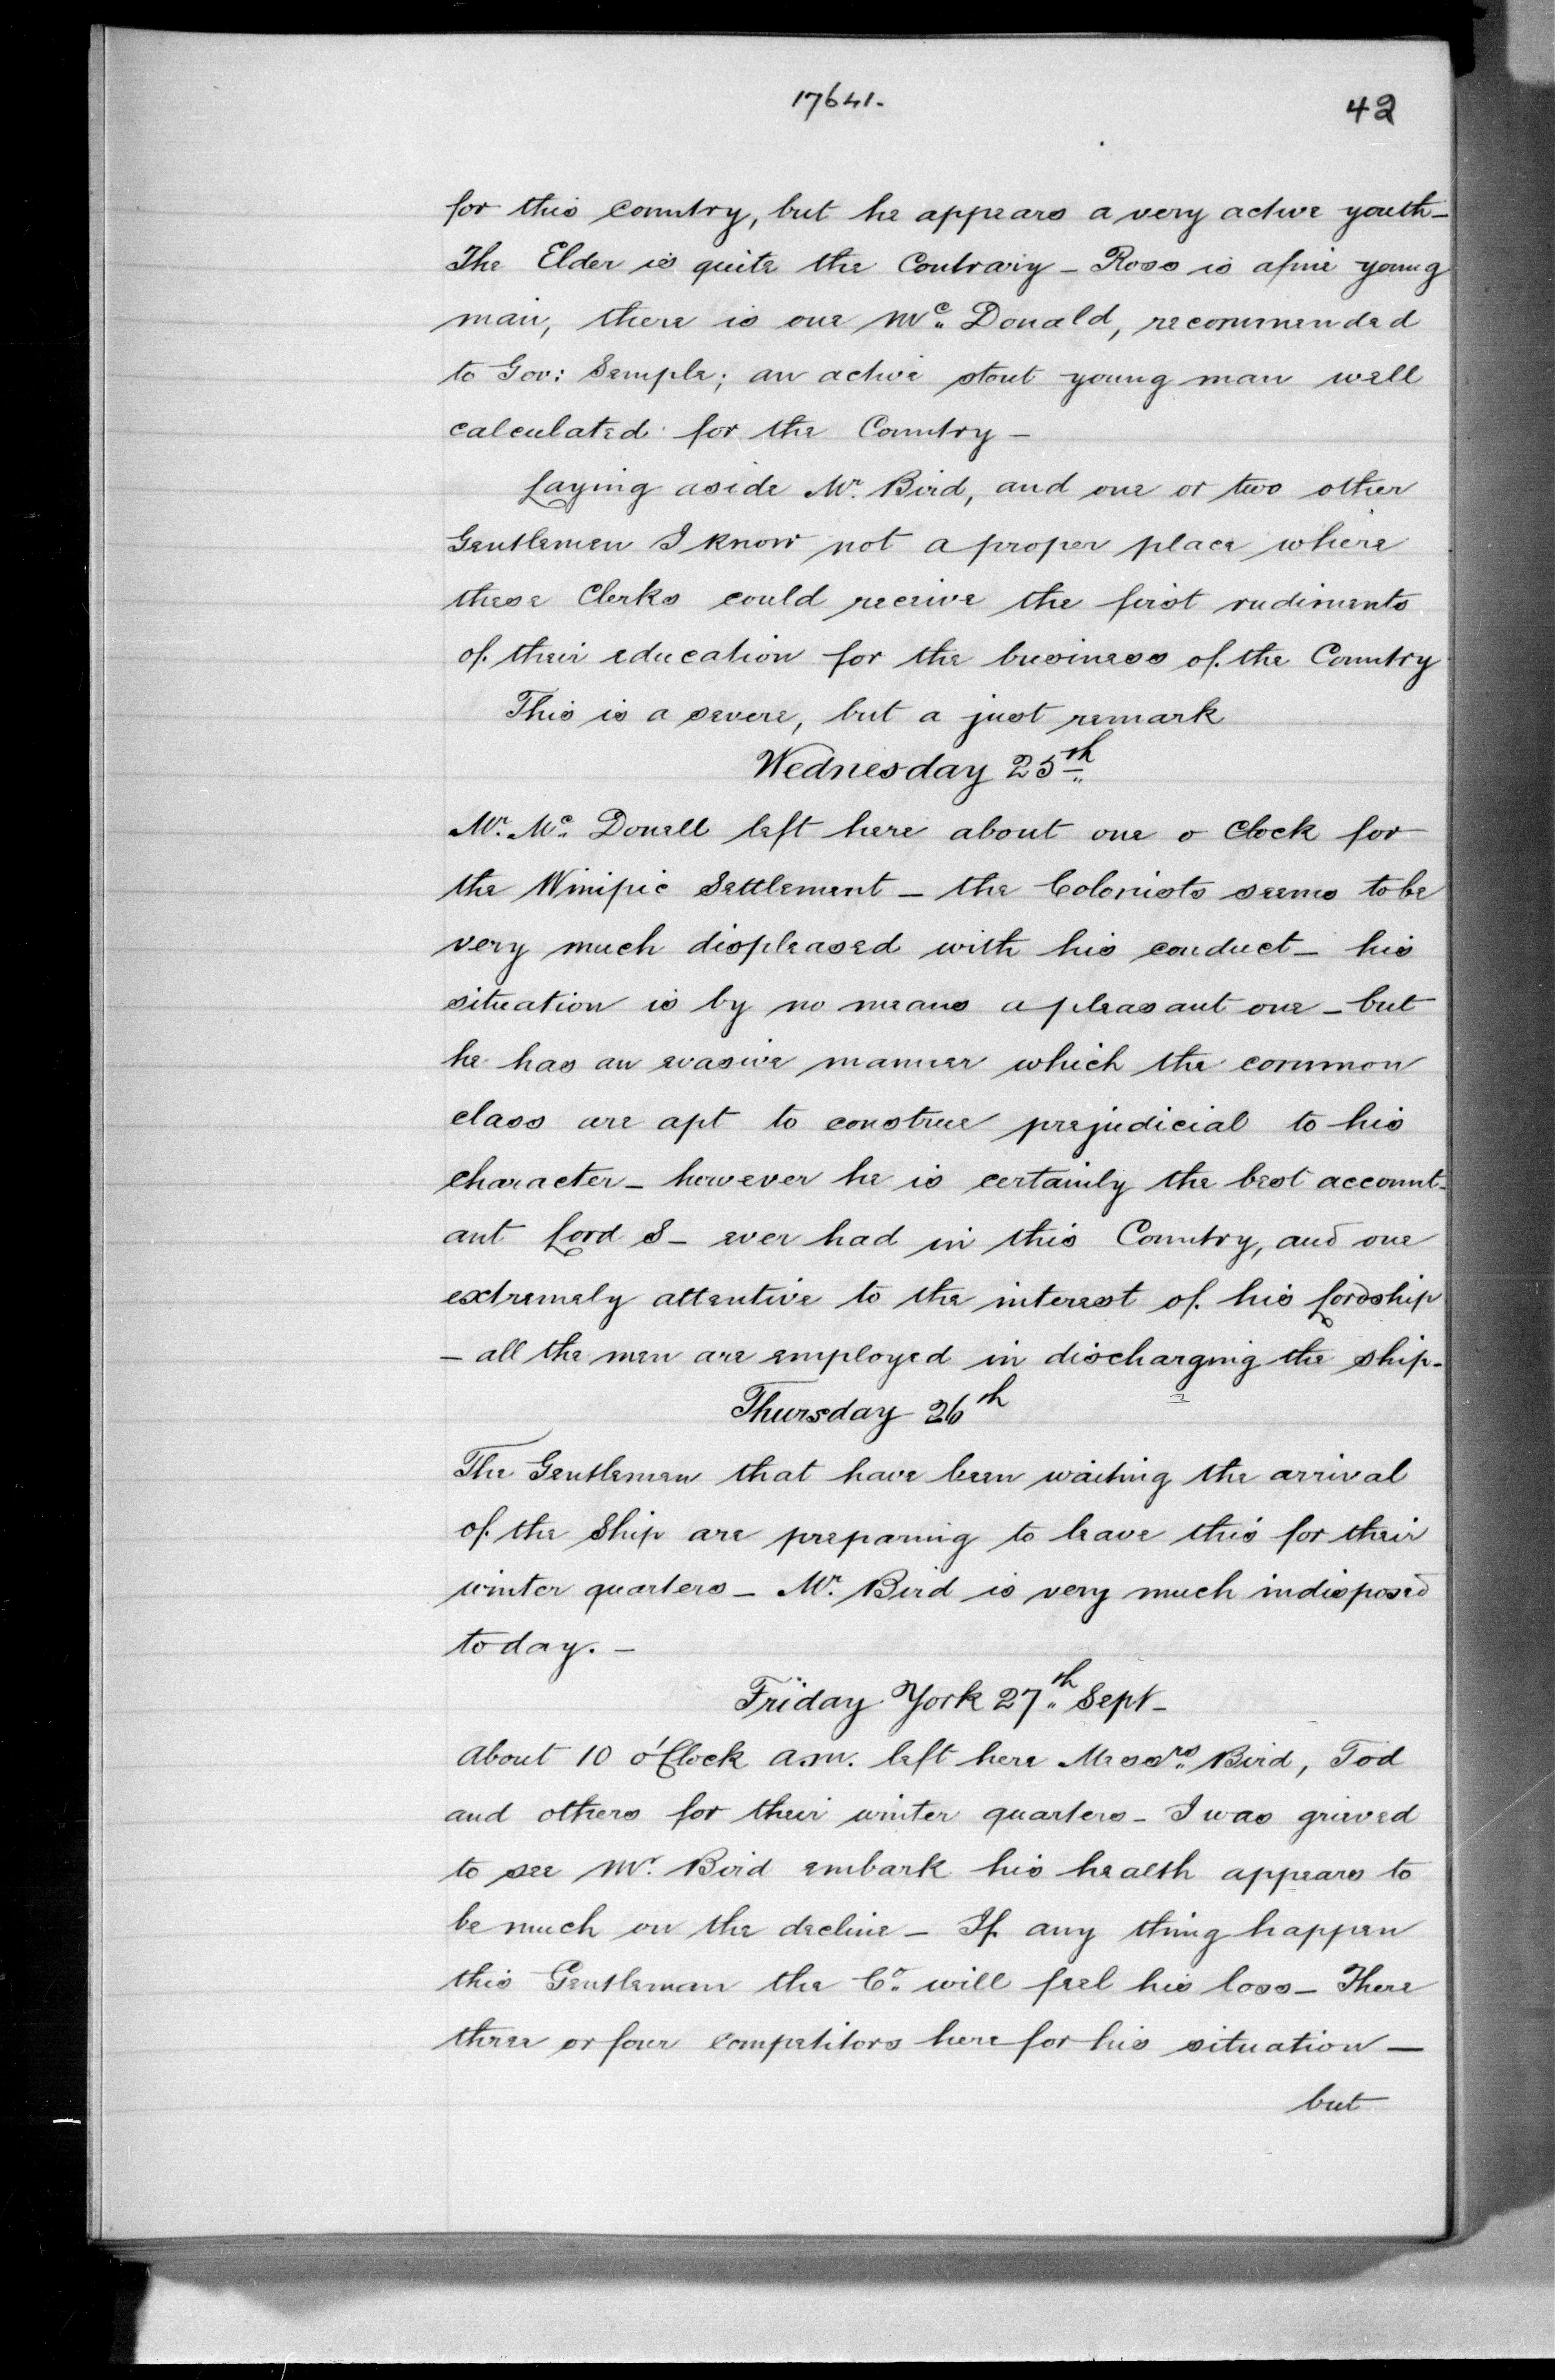 17641.
42
for this country, but he appears a very active youth_
The Elder is quite the Contrary _ Ross is a fine young
man, there is one Mc. Donald, recommended
to Gov: Semple; an active stout young man well
calculated for the Country _
Laying aside Mr. Bird, and one or two other
Gentlemen I know not a proper place where
these Clerks could receive the first rudiments
of their education for the business of the Country
This is a severe, but a just remark
Wednesday 25th
Mr. Mc. Donell left here about one o Clock for
the Winipic Settlement _ the Colonists seems to be
very much displeased with his conduct _ his
situation is by no means a pleasant one _ but
he has an evasive manner which the common
class are apt to construe prejudicial to his
character _ however he is certainly the best account-
ant Lord S_ ever had in this Country, and one
extremely attentive to the interest of his Lordship
_ all the men are employed in discharging the ship_
Thursday 26th
The Gentlemen that have been waiting the arrival
of the Ship are preparing to leave this for their
winter quarters _ Mr. Bird is very much indisposed
today. _
Friday York 27th Sept_
About 10 o'Clock a.m. left here Messrs. Bird, Tod
and others for their winter quarters _ I was grieved
to see Mr. Bird embark his health appears to
be much on the decline _ If any thing happen
this Gentleman the Co. will feel his loss _ There
three or four competitors here for his situation _
but